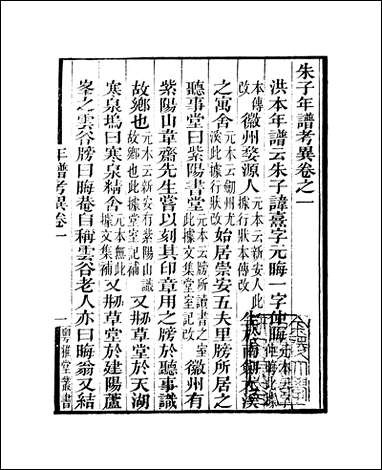 朱子年譜考異卷之一
洪本年譜云朱子諱熹字元晦一字仲晦
本傳改徽州婺源人元本云新安人此據行狀本傳改
之寓舍元本云劒州尤溪此據行狀改始居崇安五夫里牓所居之
聽事堂曰紫陽書堂元本云牓所讀書之室此據文集堂室記改徽州有
紫陽山草齋先生嘗以刻其印章用之牓於聽事識
故鄉也元本云新安有紫陽山識故鄉也此據堂室記補又刱草堂於天湖
寒泉塢曰寒泉精舍元本無此據文集補又刱草堂於建陽蘆
峯之雲谷牓曰晦菴自稱雲谷老人亦曰晦翁又結
年譜考異卷一
一
粵雅堂叢書